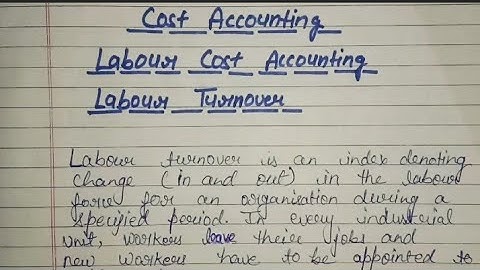 Cost Accounting
Labour Cost Accounting
Labour Turnover
Labour turnover is an index denoting
change (in and out) in the labour
force for an organization during a
specified period. In every industrial
unit, workers leave their jobs and
new workers have to be appointed to